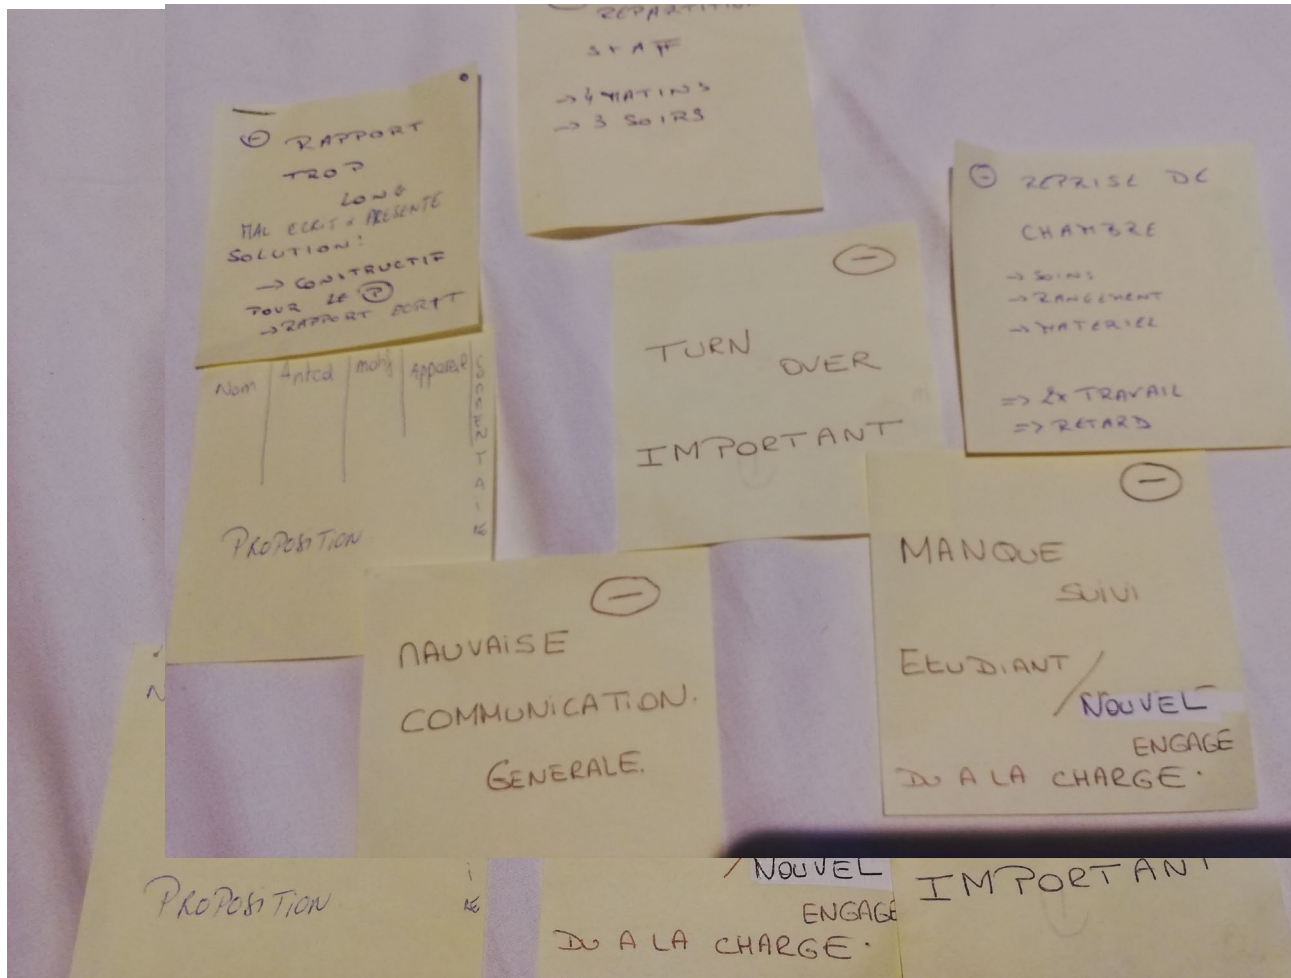 RÉPARTITION
STAFF
→ 4 MATINS
→ 3 SOIRS
⊖ RAPPORT
TROP
LONG
MAL ECRIT + PRESENTE
SOLUTION:
→ CONSTRUCTIF
POUR LE Ⓟ
→ RAPPORT ECRIT
⊖ REPRISE DE
CHAMBRE
→ SOINS
→ RANGEMENT
→ MATERIEL
⇒ 2x TRAVAIL
⇒ RETARD
⊖
TURN
OVER
IMPORTANT
Nom Anted motif Appareil
PROPOSITION
⊖
MANQUE
SUIVI
ETUDIANT/
NOUVEL
ENGAGE
DU A LA CHARGE.
⊖
MAUVAISE
COMMUNICATION.
GENERALE.
PROPOSITION
/NOUVEL
ENGAGE
DU A LA CHARGE.
IMPORTANT